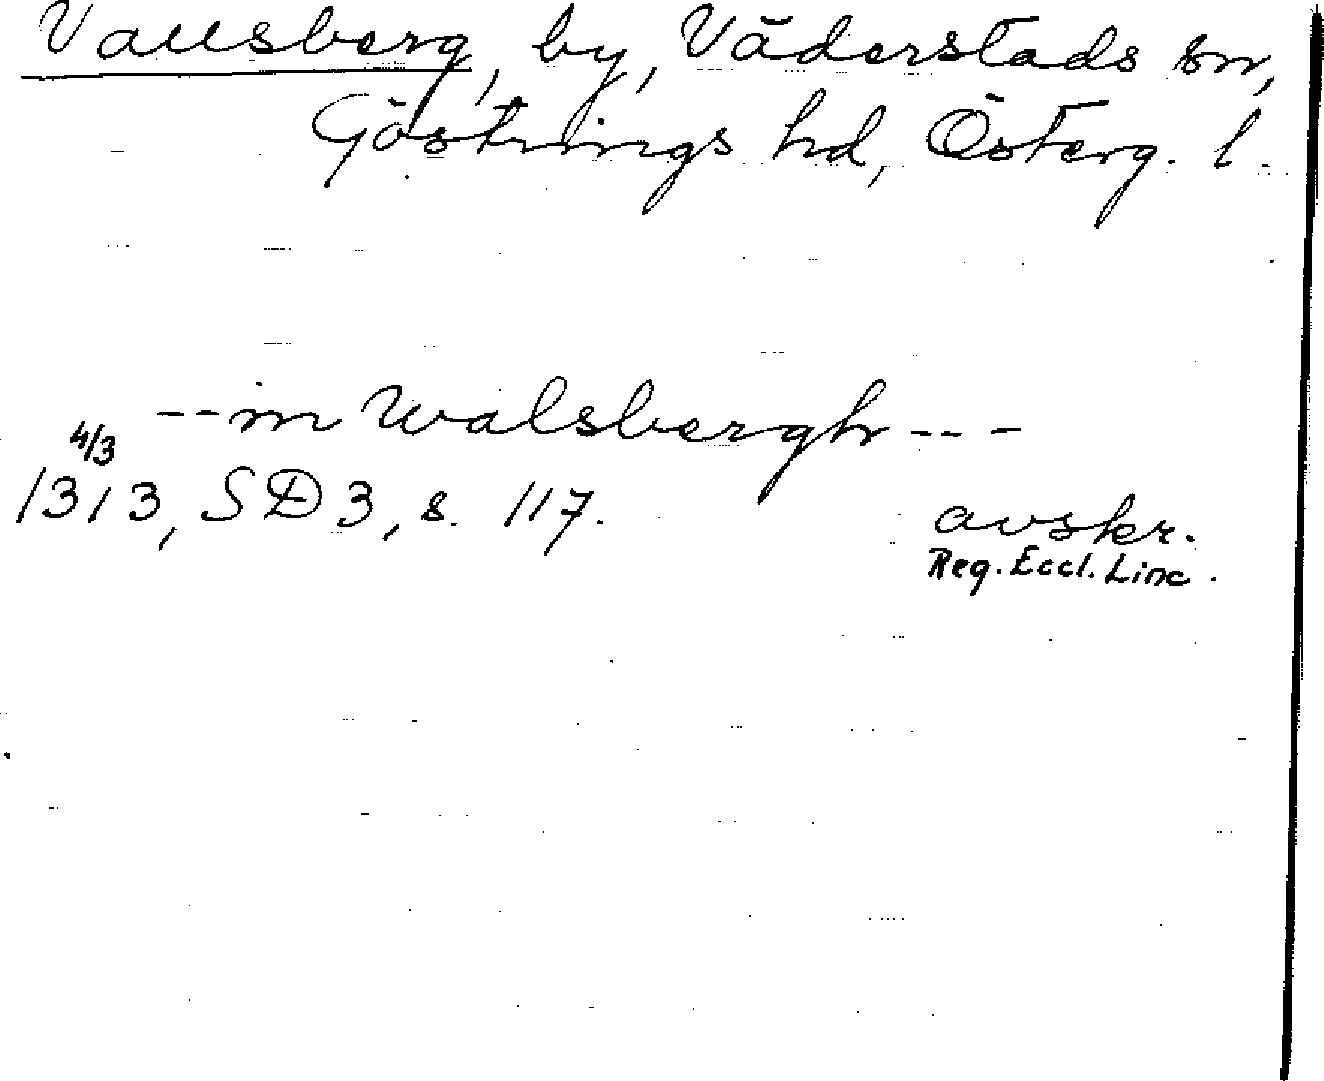 Vallsberg, by, Väderstads sn,
Göstrings hd, Österg. l.
--in Walsbergh---
4/3
1313, SD 3, s. 117.
avskr.
Reg. Eccl. Linc.